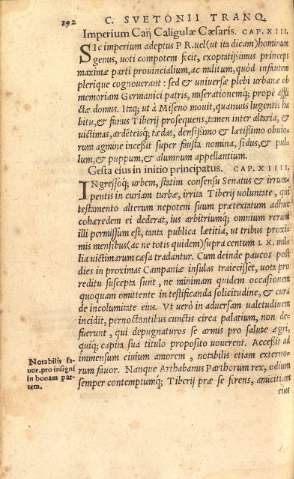 292 C. SVETONII TRANQ.
Imperium Caij Caligulæ Cæsaris. CAP. XIII.
SIc imperium adeptus P R. uel (ut ita dicam) hominum
genus, uoti compotem fecit, exoptatissimus princeps
maximæ parti prouincialium, ac militum, quòd infantem
plerique cognouerant: sed & uniuersæ plebi urbanæ ob
memoriam Germanici patris, miserationemq́; propè affli
ctæ domus. Itaq; ut à Miseno mouit, quanuis lugentis ha
bitu, & funus Tiberij prosequens, tamen inter altaria, &
uictimas, ardẽteisq; tædas, densissimo & lætissimo obuio-
rum agmine incessit super fausta nomina, sidus, & pul-
lum, & puppum, & alumnum appellantium.
Gesta eius in initio principatus. CAP. XIIII.
INgressoq́; urbem, statim consensu Senatus & irrum
pentis in curiam turbæ, irrita Tiberij uoluntate, qui
testamento alterum nepotem suum prætextatum adhuc
cohæredem ei dederat, ius arbitriumq́; omnium rerum
illi permissum est, tanta publica lætitia, ut tribus proxi-
mis mensibus (ac ne totis quidem) supra centum LX. mil-
lia uictimarum cæsa tradantur. Cum deinde paucos post
dies in proximas Campaniæ insulas traiecisset, uota pro
reditu suscepta sunt, ne minimam quidem occasionem
quoquam omittente in testificanda solicitudine, & cura
de incolumitate eius. Vt uerò in aduersam ualetudinem
incidit, pernoctantibus cunctis circa palatium, non de-
fuerunt, qui depugnaturos se armis pro salute ægri,
quiq́; capita sua titulo proposito uouerent. Accessit ad
immensum ciuium amorem, notabilis etiam externo-
rum fauor. Nanque Arthabanus Parthorum rex, odium
semper contemptumq́; Tiberij præ se ferens, amicitiam
eius
Notabilis fa-
uor, pro insigni
in bonam par-
tem.